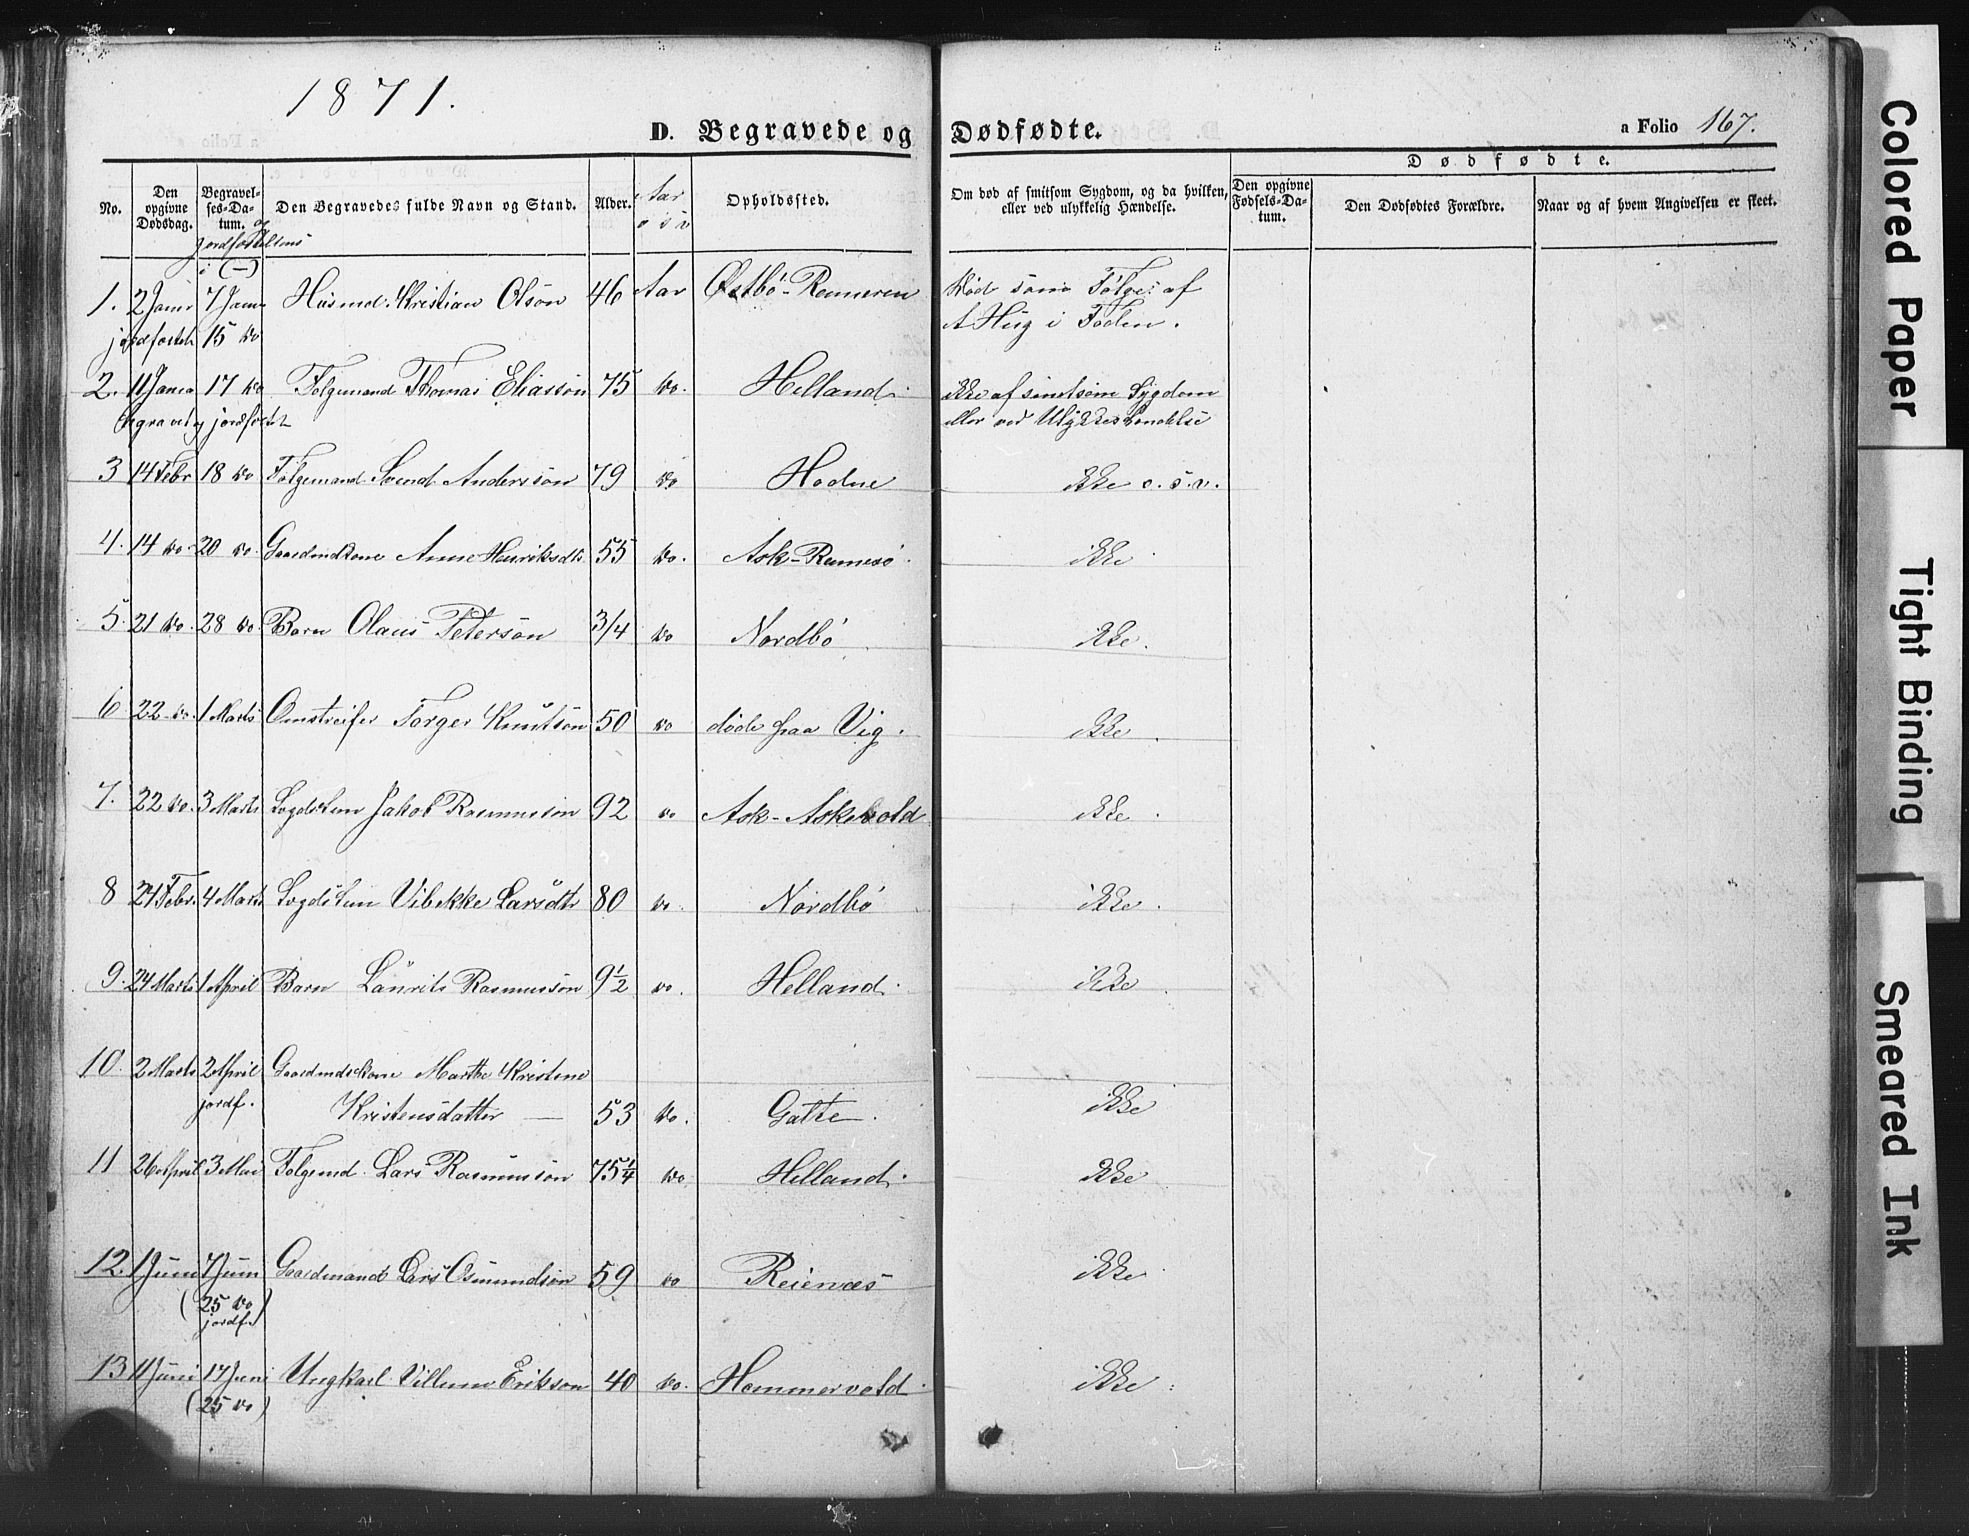 1871.
D. Begravede og Dødfødte.
a Folio 167.
No.
Den opgivne Dødsdag.
Begravelses-Datum. og Jordfæstelsens i (—)
Den Begravedes fulde Navn og Stand.
Alder.
Aar o s v
Opholdssted.
Om død af smitsom Sygdom, og da hvilken, eller ved ulykkelig Hændelse.
Dødfødte.
Den opgivne Fødsels-Datum.
Den Dødfødtes Forældre.
Naar og af hvem Angivelsen er skeet.
1. 2 Janr 7 Janr Husmd. Kristian Olsøn 46 Aar Østbø-Renneren Død som Følge af
jordfæstet 15 do A Hug i Foden.
2. 11 Janr 17 do Følgemand Thomas Eliassøn 75 do. Helland. ikke af smitsom Sygdom
begravet og jordfæstet eller ved Ulykkeshændelse
3 14 Febr 18 do Følgemand Svend Anderssøn 79 do Hodne ikke o.s.v.
4. 14 do. 20 do. Gaardmdkone Anne Henriksdtr 55 do. Ask-Rennesø. ikke
5. 21 do. 28 do. Barn Olaus Petersøn 3/4 do Nordbø ikke.
6 22 do. 1 Marts Omstreifer Torger Knutsøn 50 do døde paa Vig. ikke.
7. 22 do. 3 Marts Lægdslem Jakob Rasmussøn 92 do Ask-Askevold ikke.
8 24 Febr. 4 Marts Lægdslem Vibekke Larsdtr 80 do. Nordbø ikke.
9. 24 Marts 1 April Barn Laurits Rasmussøn 9½ do. Helland. ikke.
10. 2 Marts 2 April Gaardmdskone Marthe Kristine
jordf. Kristensdatter — 53 do. Galte. ikke
11 26 April 3 Mai Følgemd. Lars Rasmussøn 75¼ do. Helland. ikke
12. 1 Juni 7 Juni Gaardmand Lars Osmundsøn 59 do Reienæs ikke
(25 do)
jordf.
13 11 Juni 17 Juni Ungkarl Villum Eriksøn 40 do. Hammervold. ikke.
(25 do)
Colored Paper
Tight Binding
Smeared Ink